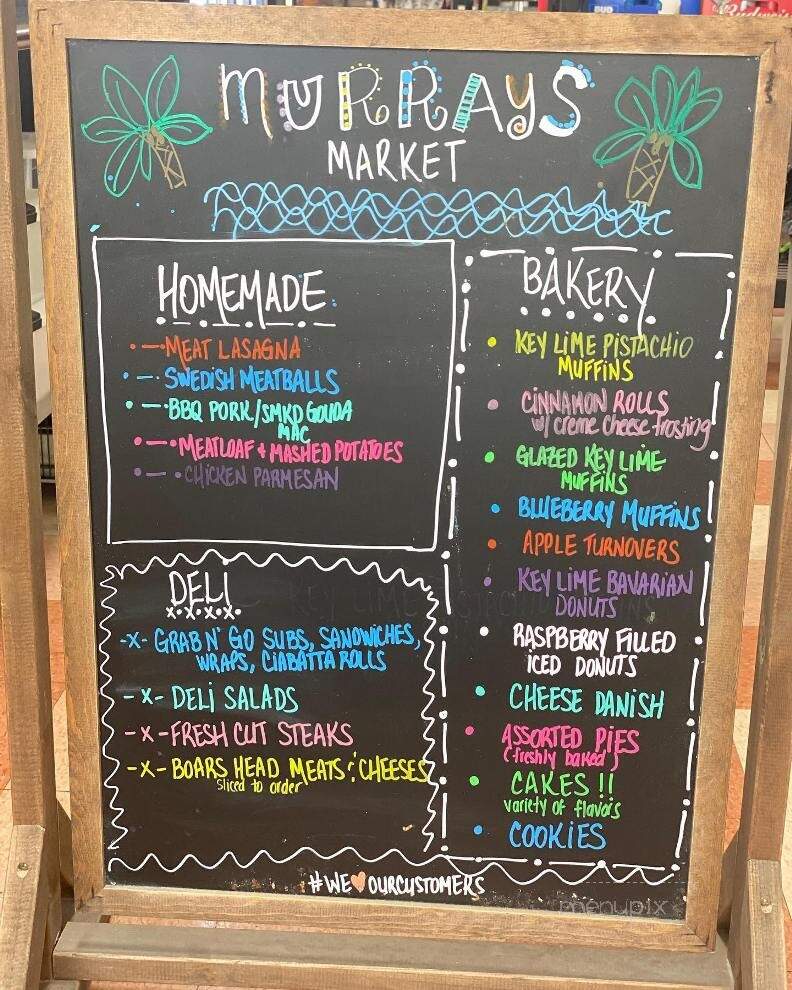 MURRAYS
MARKET
HOMEMADE
MEAT LASAGNA
SWEDISH MEATBALLS
BBQ PORK/SMKD GOUDA
MAC
MEATLOAF + MASHED POTATOES
CHICKEN PARMESAN
DELI
X.X.X.X.
-X- GRAB N' GO SUBS, SANDWICHES,
WRAPS, CIABATTA ROLLS
-X- DELI SALADS
-X- FRESH CUT STEAKS
-X- BOARS HEAD MEATS & CHEESES
Sliced to order
BAKERY
• KEY LIME PISTACHIO
MUFFINS
• CINNAMON ROLLS
w/ creme cheese frosting
• GLAZED KEY LIME
MUFFINS
• BLUEBERRY MUFFINS
• APPLE TURNOVERS
• KEY LIME BAVARIAN
DONUTS
• RASPBERRY FILLED
ICED DONUTS
• CHEESE DANISH
• ASSORTED PIES
(freshly baked)
• CAKES !!
variety of flavors
• COOKIES
#WE🧡OURCUSTOMERS
menupix